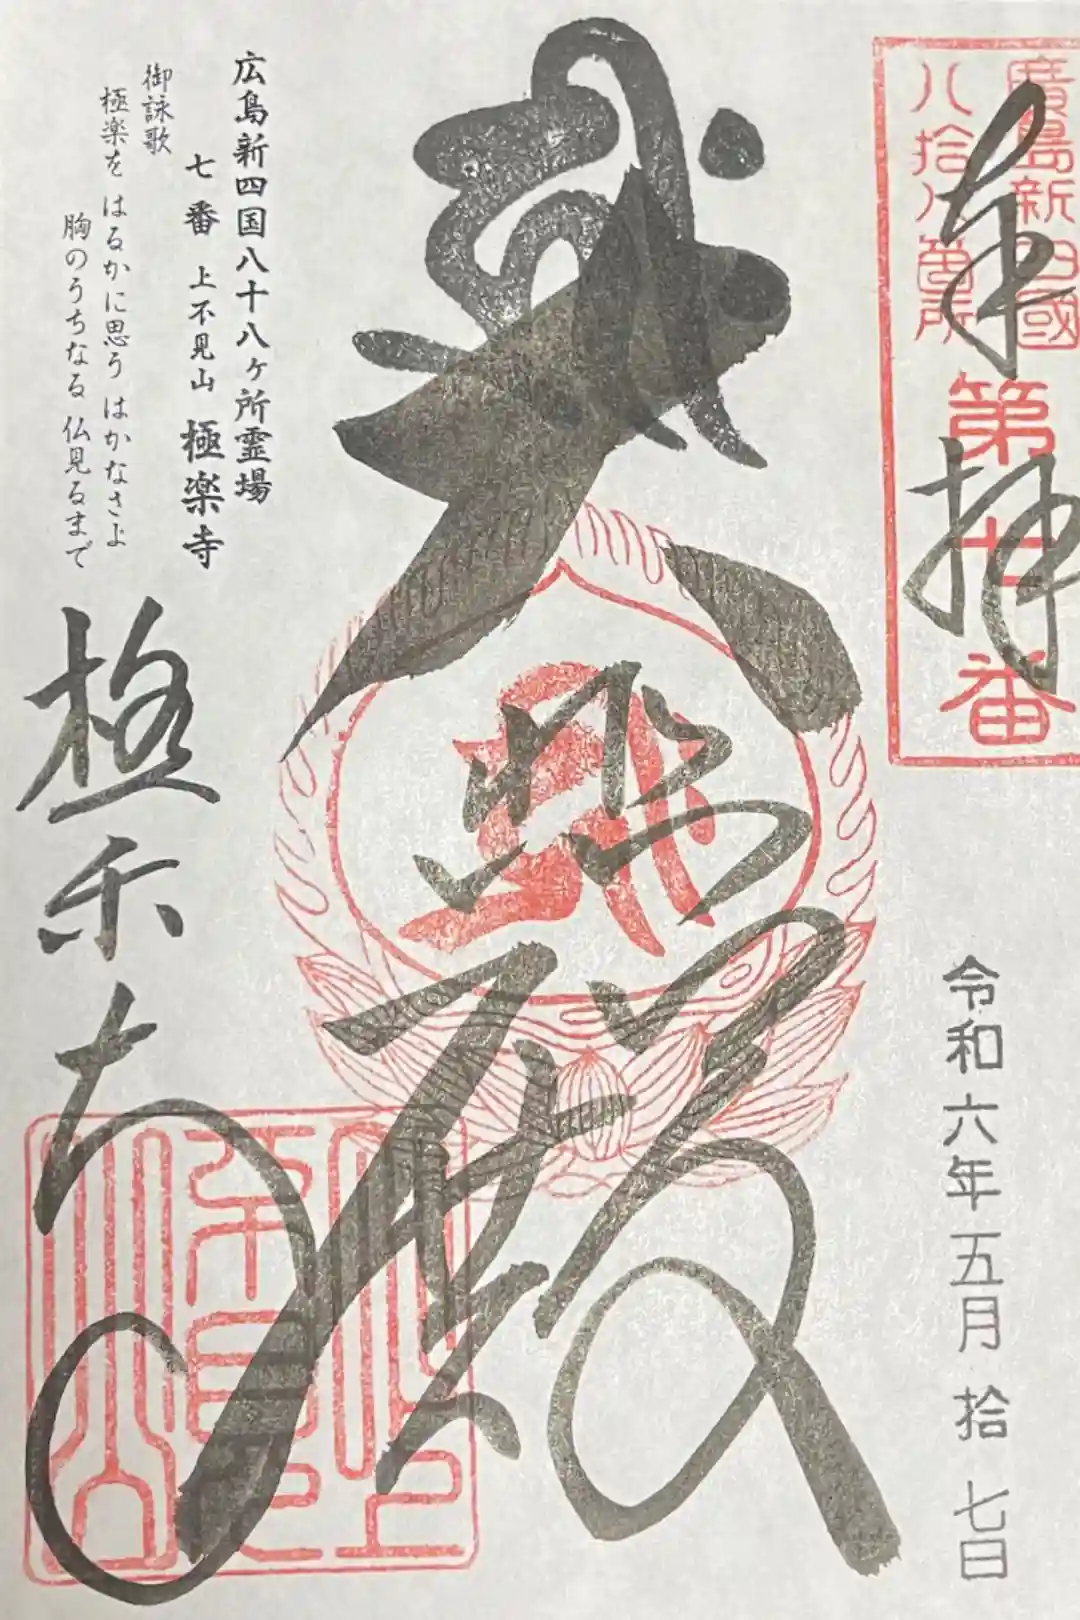 廣島新四國
八拾八箇所
第七番
奉拝
令和六年五月拾七日
大悲殿
広島新四国八十八ヶ所霊場
七番 上不見山 極楽寺
御詠歌
極楽を はるかに思う はかなさよ
胸のうちなる 仏見るまで
極楽寺
上不見山